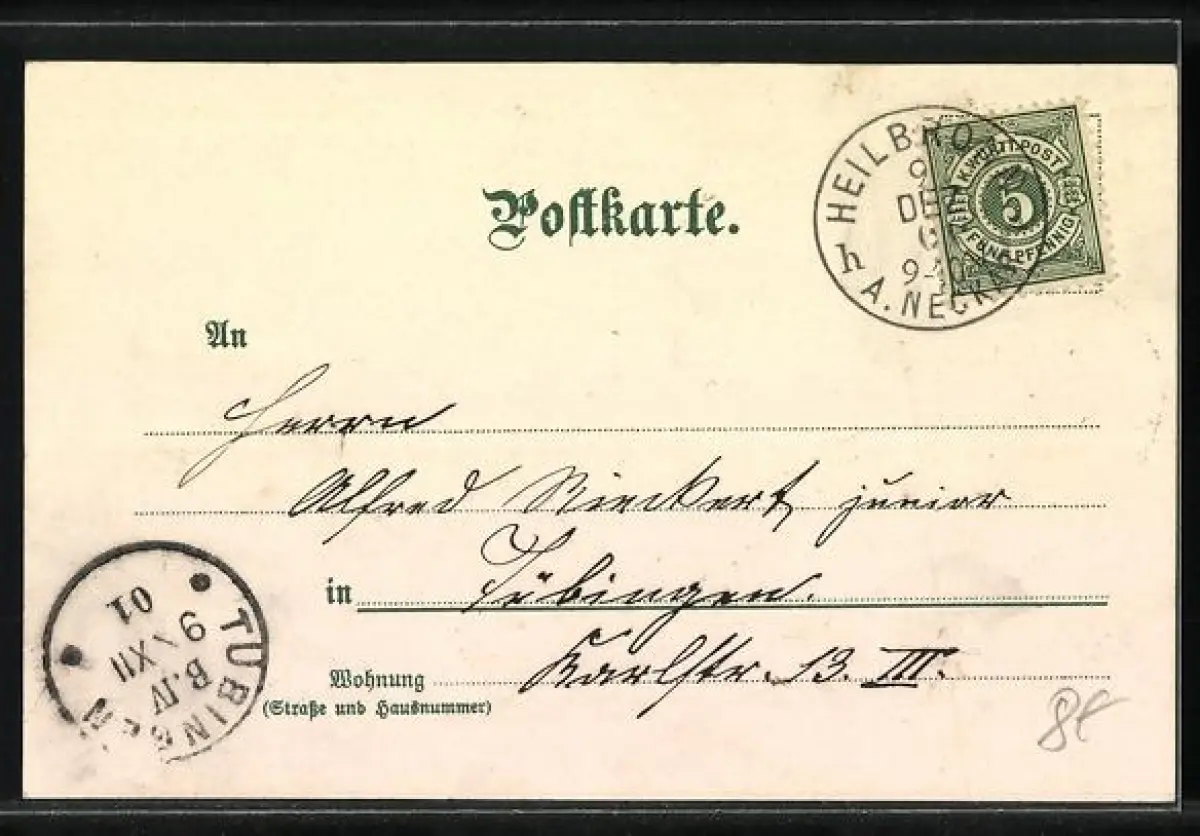 Postkarte.
HEILBRO
9
DEZ
9-10
h
A. NECKAR
K. WÜRTT. POST
5
FÜNF PFENNIG
An
Herrn
Alfred Rieckert junior
in Tübingen.
Wohnung Karlstr. 13. III.
(Straße und Hausnummer)
TÜBINGEN
B.IV
9 XII
01
8€